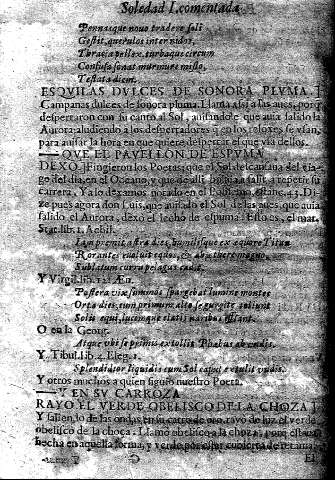 Soledad I. comentada
Pennasque nouo tradere soli
Gestit, querulos inter nidos,
Thracia pellex, turbaque circum
Confusa sonat murmure misto,
Testata diem.
ESQVILAS DVLCES DE SONORA PLVMA. ]
Campanas dulces de sonora pluma. Llama assi a las aues, porq̃
despertaron con su canto al Sol, auisandole que auia salido la
Aurora: aludiendo a los despertadores q̃ en los reloxes se vsan,
para auisar la hora en que quiere despertar el que vsa dellos.
QVE EL PAVELLON DE ESPVMA
DEXO.] Fingieron los Poetas que el Sol descansaua del
go del dia, en el Oceano, y que de alli boluia a salir a repetir su
carrera. Y a lo dexamos notado en el
ze pues agora don Luis, que auisado el Sol de las aues, que auia
salido el Aurora, dexò el lecho de espuma: Esto es, el mar.
Stat. lib. 1. Achil.
Iam premit astra dies, humilisque ex æquore Titan
Rorantes euoluit equos, & ab æthere magno
Sublatum curru pelagus cadit.
Y Virgil. lib. 12. Æn.
Postera vix summos spargebat lumine montes
Orta dies, cum primum alto se gurgite tollunt
Solis equi, lucemque elatis naribus efflant.
O en la Georg.
Atque vbi se primis extollit Phœbus ab vndis.
Y Tibul. lib. 4. Eleg. 1.
Splendidior liquidis cum Sol caput extulit vndis.
Y otros muchos a quien siguiò nuestro Poeta.
Y EN SV CARROZA
RAYO EL VERDE OBELISCO DE LA CHOZA.]
Y saliendo de las ondas en su carro de oro, rayò de luz el verde
obelisco de la choça. Llamò obelisco a la choça, porq̃ estaua
hecha en aquella forma, y verde por estar cubierta de retama,
G El